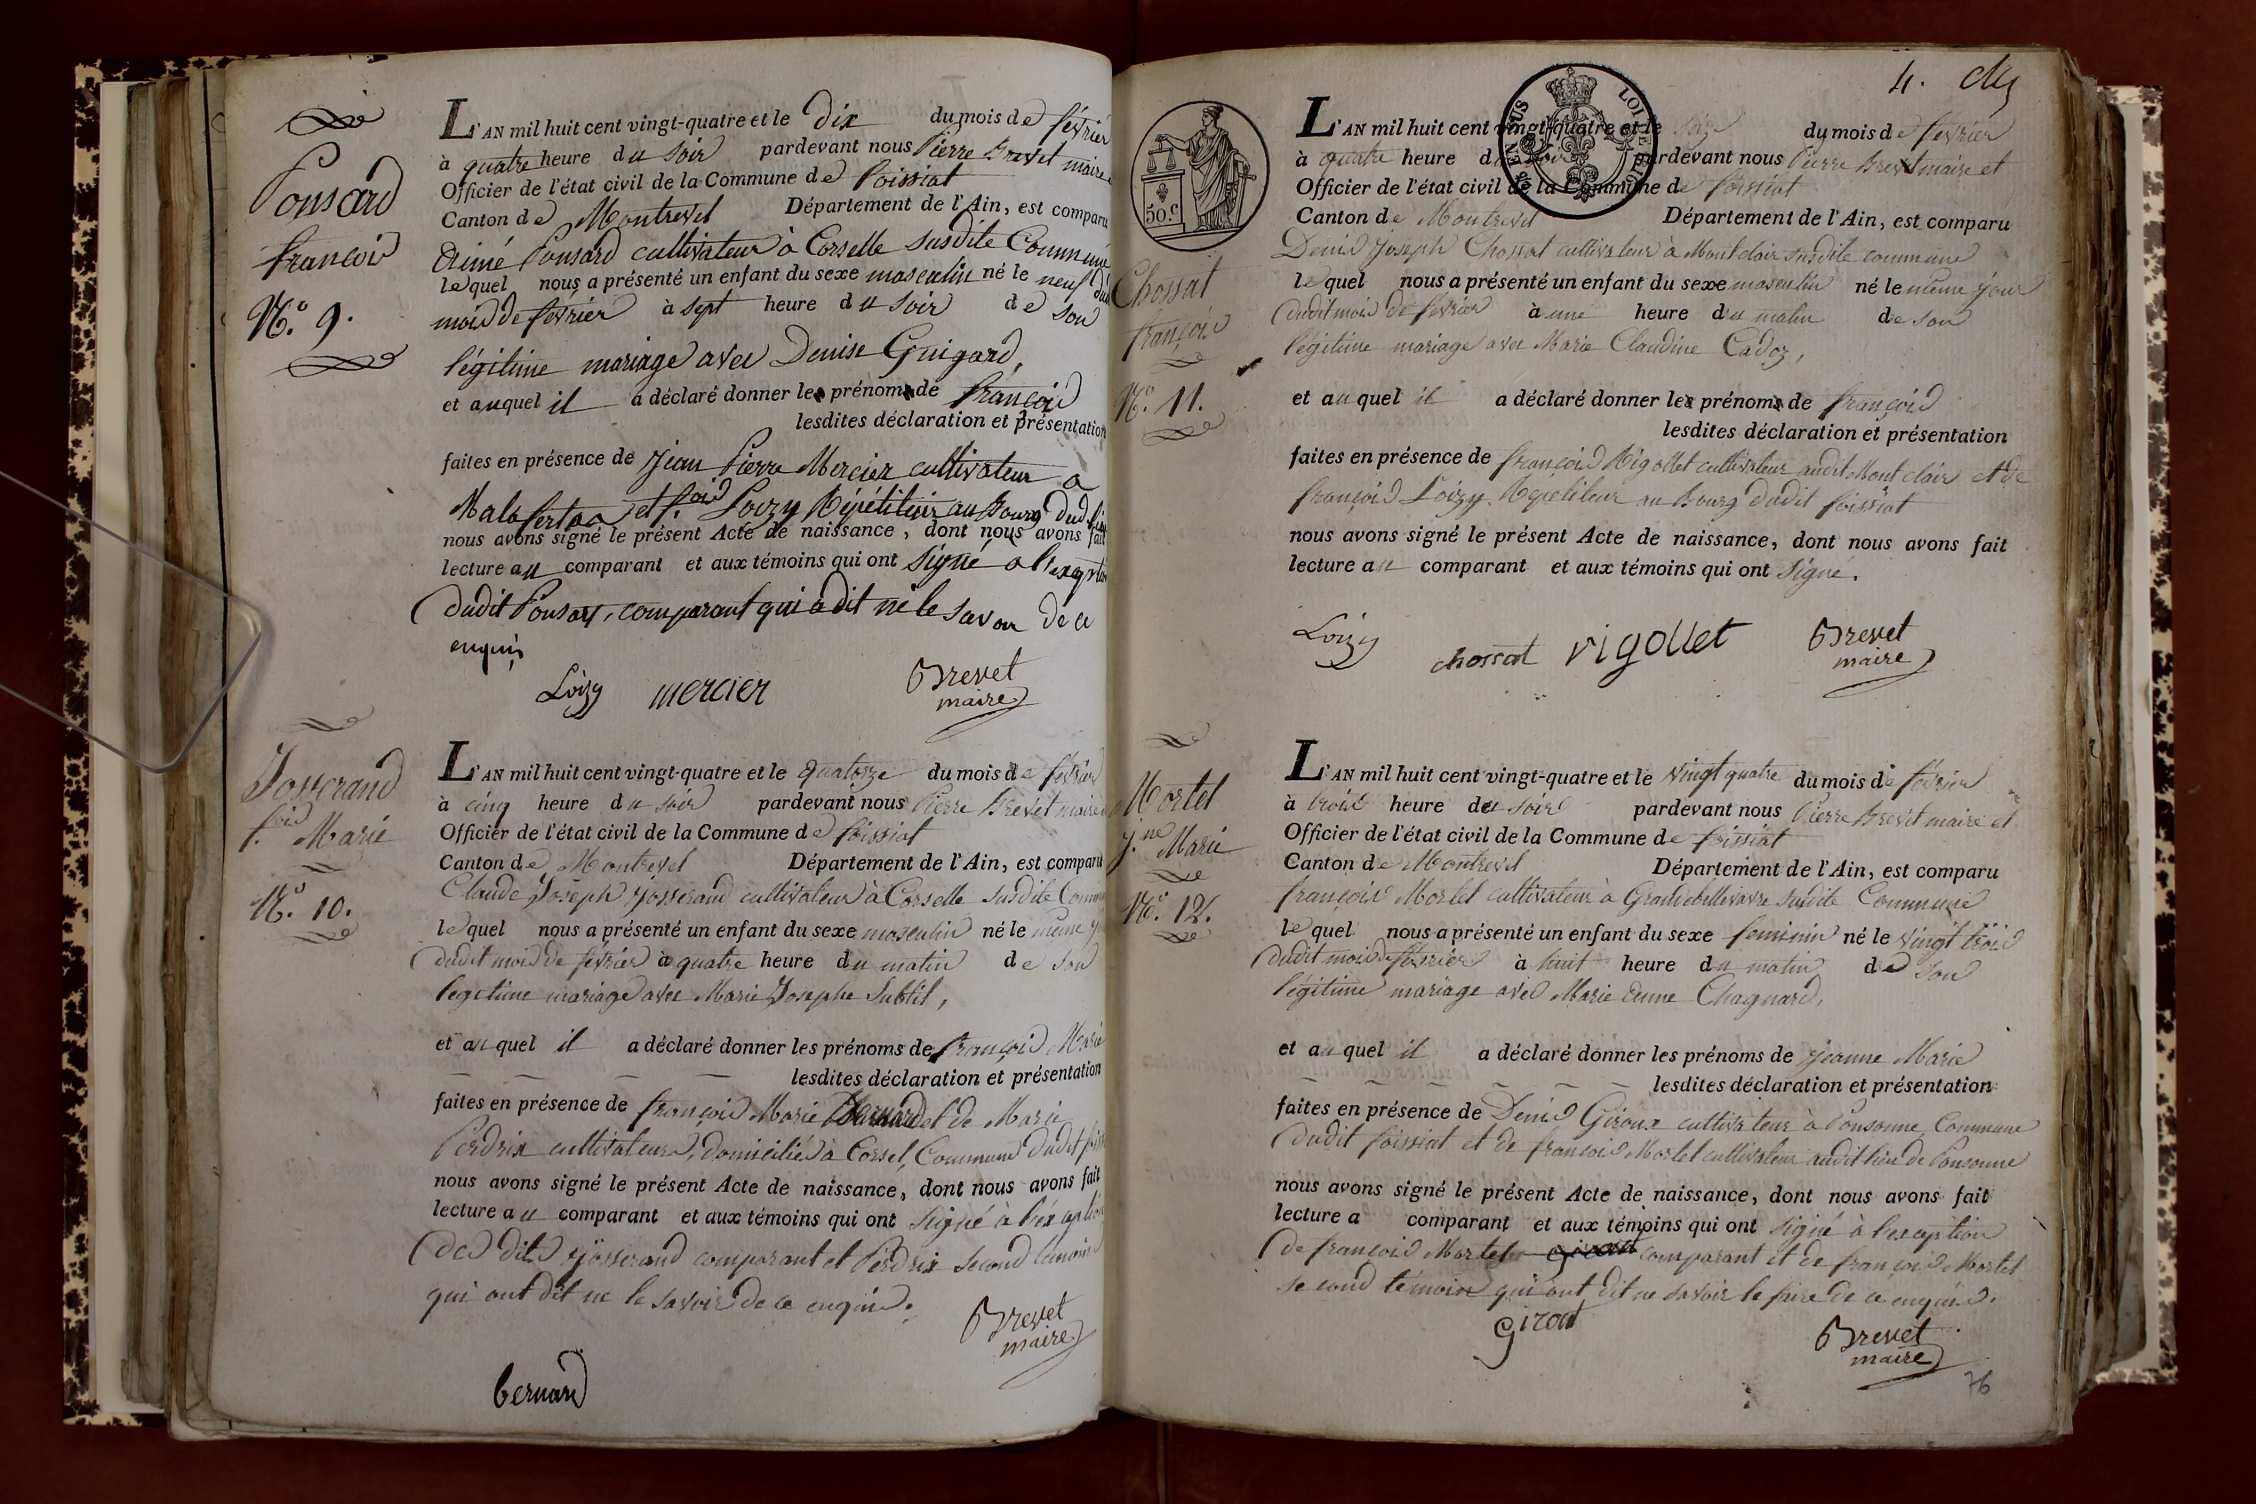 Ponsard
françois
N.o 9.
L'AN mil huit cent vingt-quatre et le dix du mois de février
à quatre heure du soir pardevant nous Pierre Brevet maire
Officier de l'état civil de la Commune de foissiat
Canton de Montrevel Département de l'Ain, est comparu
Aimé Ponsard cultivateur à Corselle susdite Commune
lequel nous a présenté un enfant du sexe masculin né le neuf du
mois de février à sept heure du soir de son
légitime mariage avec Denise Guigard,
et auquel il a déclaré donner le prénom de françois
lesdites déclaration et présentation
faites en présence de Jean Pierre Mercier cultivateur a
et f.ois Loizy Répétiteur au Bourg dud.
nous avons signé le présent Acte de naissance, dont nous avons fait
lecture au comparant et aux témoins qui ont signé a l'exception
dudit Ponsard, comparant qui a dit ne le savoir de ce
enquis
Loizy mercier Brevet
maire
Josserand
f.ois Marie
N.o 10.
L'AN mil huit cent vingt-quatre et le quatorze du mois de février
à cinq heure du soir pardevant nous Pierre Brevet maire
Officier de l'état civil de la Commune de foissiat
Canton de Montrevel Département de l'Ain, est comparu
Claude Joseph Josserand cultivateur à Corselle susdite Commune
lequel nous a présenté un enfant du sexe masculin né le même
dudit mois de février à quatre heure du matin de son
légitime mariage avec Marie Josephe Subtil,
et auquel il a déclaré donner les prénoms de françois Marie
lesdites déclaration et présentation
faites en présence de françois Marie Bernard et de Marie
Perdrix cultivateurs, domiciliés à Corsel, Commune dudit
nous avons signé le présent Acte de naissance, dont nous avons fait
lecture au comparant et aux témoins qui ont signé à l'exception
des dits Josserand comparant et Perdrix second témoin
qui ont dit ne le savoir de ce enquis.
Brevet
maire
bernard
4.
50.C
EN SUS
LOI DE
Chossat
françois
N.o 11.
L'AN mil huit cent vingt-quatre et le seize du mois de février
à quatre heure du soir pardevant nous Pierre Brevet maire et
Officier de l'état civil de la Commune de foissiat
Canton de Montrevel Département de l'Ain, est comparu
Denis Joseph Chossat cultivateur à Montclair susdite commune
lequel nous a présenté un enfant du sexe masculin né le même jour
dudit mois de février à une heure du matin de son
légitime mariage avec Marie Claudine Cadoz,
et auquel il a déclaré donner le prénom de françois
lesdites déclaration et présentation
faites en présence de françois Vigollet cultivateur audit Montclair et de
françois Loizy Répétiteur au Bourg dudit foissiat
nous avons signé le présent Acte de naissance, dont nous avons fait
lecture au comparant et aux témoins qui ont signé.
Loizy chossat vigollet Brevet
maire
Mortel
j.ne Marie
N.o 12.
L'AN mil huit cent vingt-quatre et le vingt quatre du mois de février
à trois heure du soir pardevant nous Pierre Brevet maire et
Officier de l'état civil de la Commune de foissiat
Canton de Montrevel Département de l'Ain, est comparu
françois Mortel cultivateur à Grandebellevavre susdite Commune
lequel nous a présenté un enfant du sexe feminin né le vingt trois
dudit mois de février à huit heure du matin de son
légitime mariage avec Marie Anne Chagnard,
et auquel il a déclaré donner les prénoms de Jeanne Marie
lesdites déclaration et présentation
faites en présence de Denis Giroux cultivateur à Ponsonne, Commune
dudit foissiat et de françois Mortel cultivateur audit lieu de Ponsonne
nous avons signé le présent Acte de naissance, dont nous avons fait
lecture a comparant et aux témoins qui ont signé à l'exception
de françois Mortel comparant et de françois Mortel
second témoin qui ont dit ne savoir le faire de ce enquis.
Brevet
maire
76